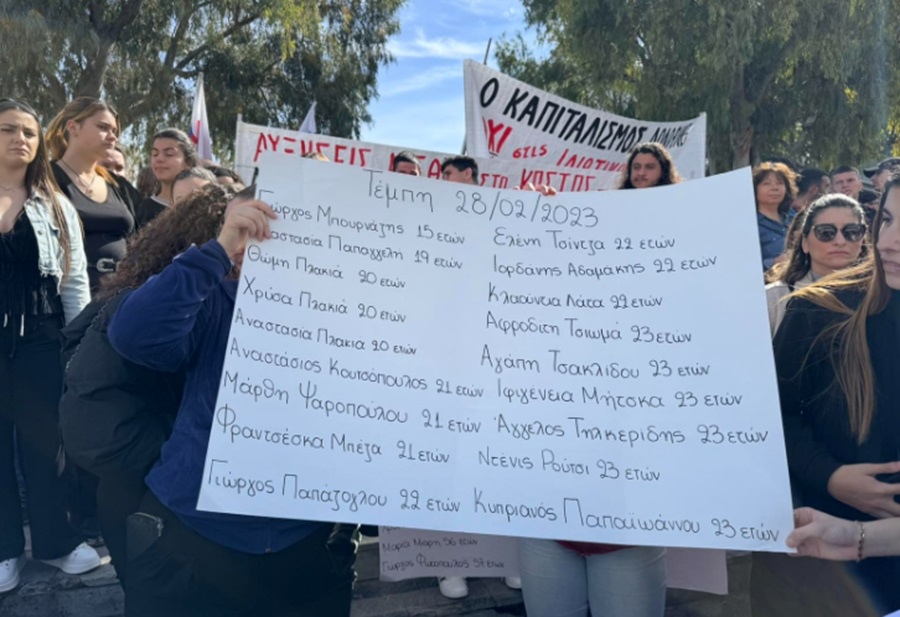 Ο ΚΑΠΙΤΑΛΙΣΜΟΣ
ΣΤΙΣ ΙΔΙΩΤΙΚ
ΑΥΞΗΣΕΙΣ
ΣΤΟ ΚΟΣΤΟΣ
Τέμπη 28/02/2023
Γιώργος Μπουρνάζης 15 ετών
Παπαγγελή 19 ετών
Θώμη Πλακιά 20 ετών
Χρύσα Πλακιά 20 ετών
Αναστασία Πλακια 20 ετών
Αναστάσιος Κουτσόπουλος 21 ετών
Μάρθη Ψαροπούλου 21 ετών
Φραντσέσκα Μπέζα 21 ετών
Γιώργος Παπάζογλου 22 ετών
Ελένη Τσίντζα 22 ετών
Ιορδάνης Αδαμάκης 22 ετών
Κλαούντια Λάτα 22 ετών
Αφροδίτη Τσιωμά 23 ετών
Αγάπη Τσακλίδου 23 ετών
Ιφιγένεια Μήτσκα 23 ετών
Άγγελος Τηλκερίδης 23 ετών
Ντένις Ρούτσι 23 ετών
Κυπριανός Παπαϊωάννου 23 ετών
Μαρία 56 ετών
Γιώργος 57 ετών